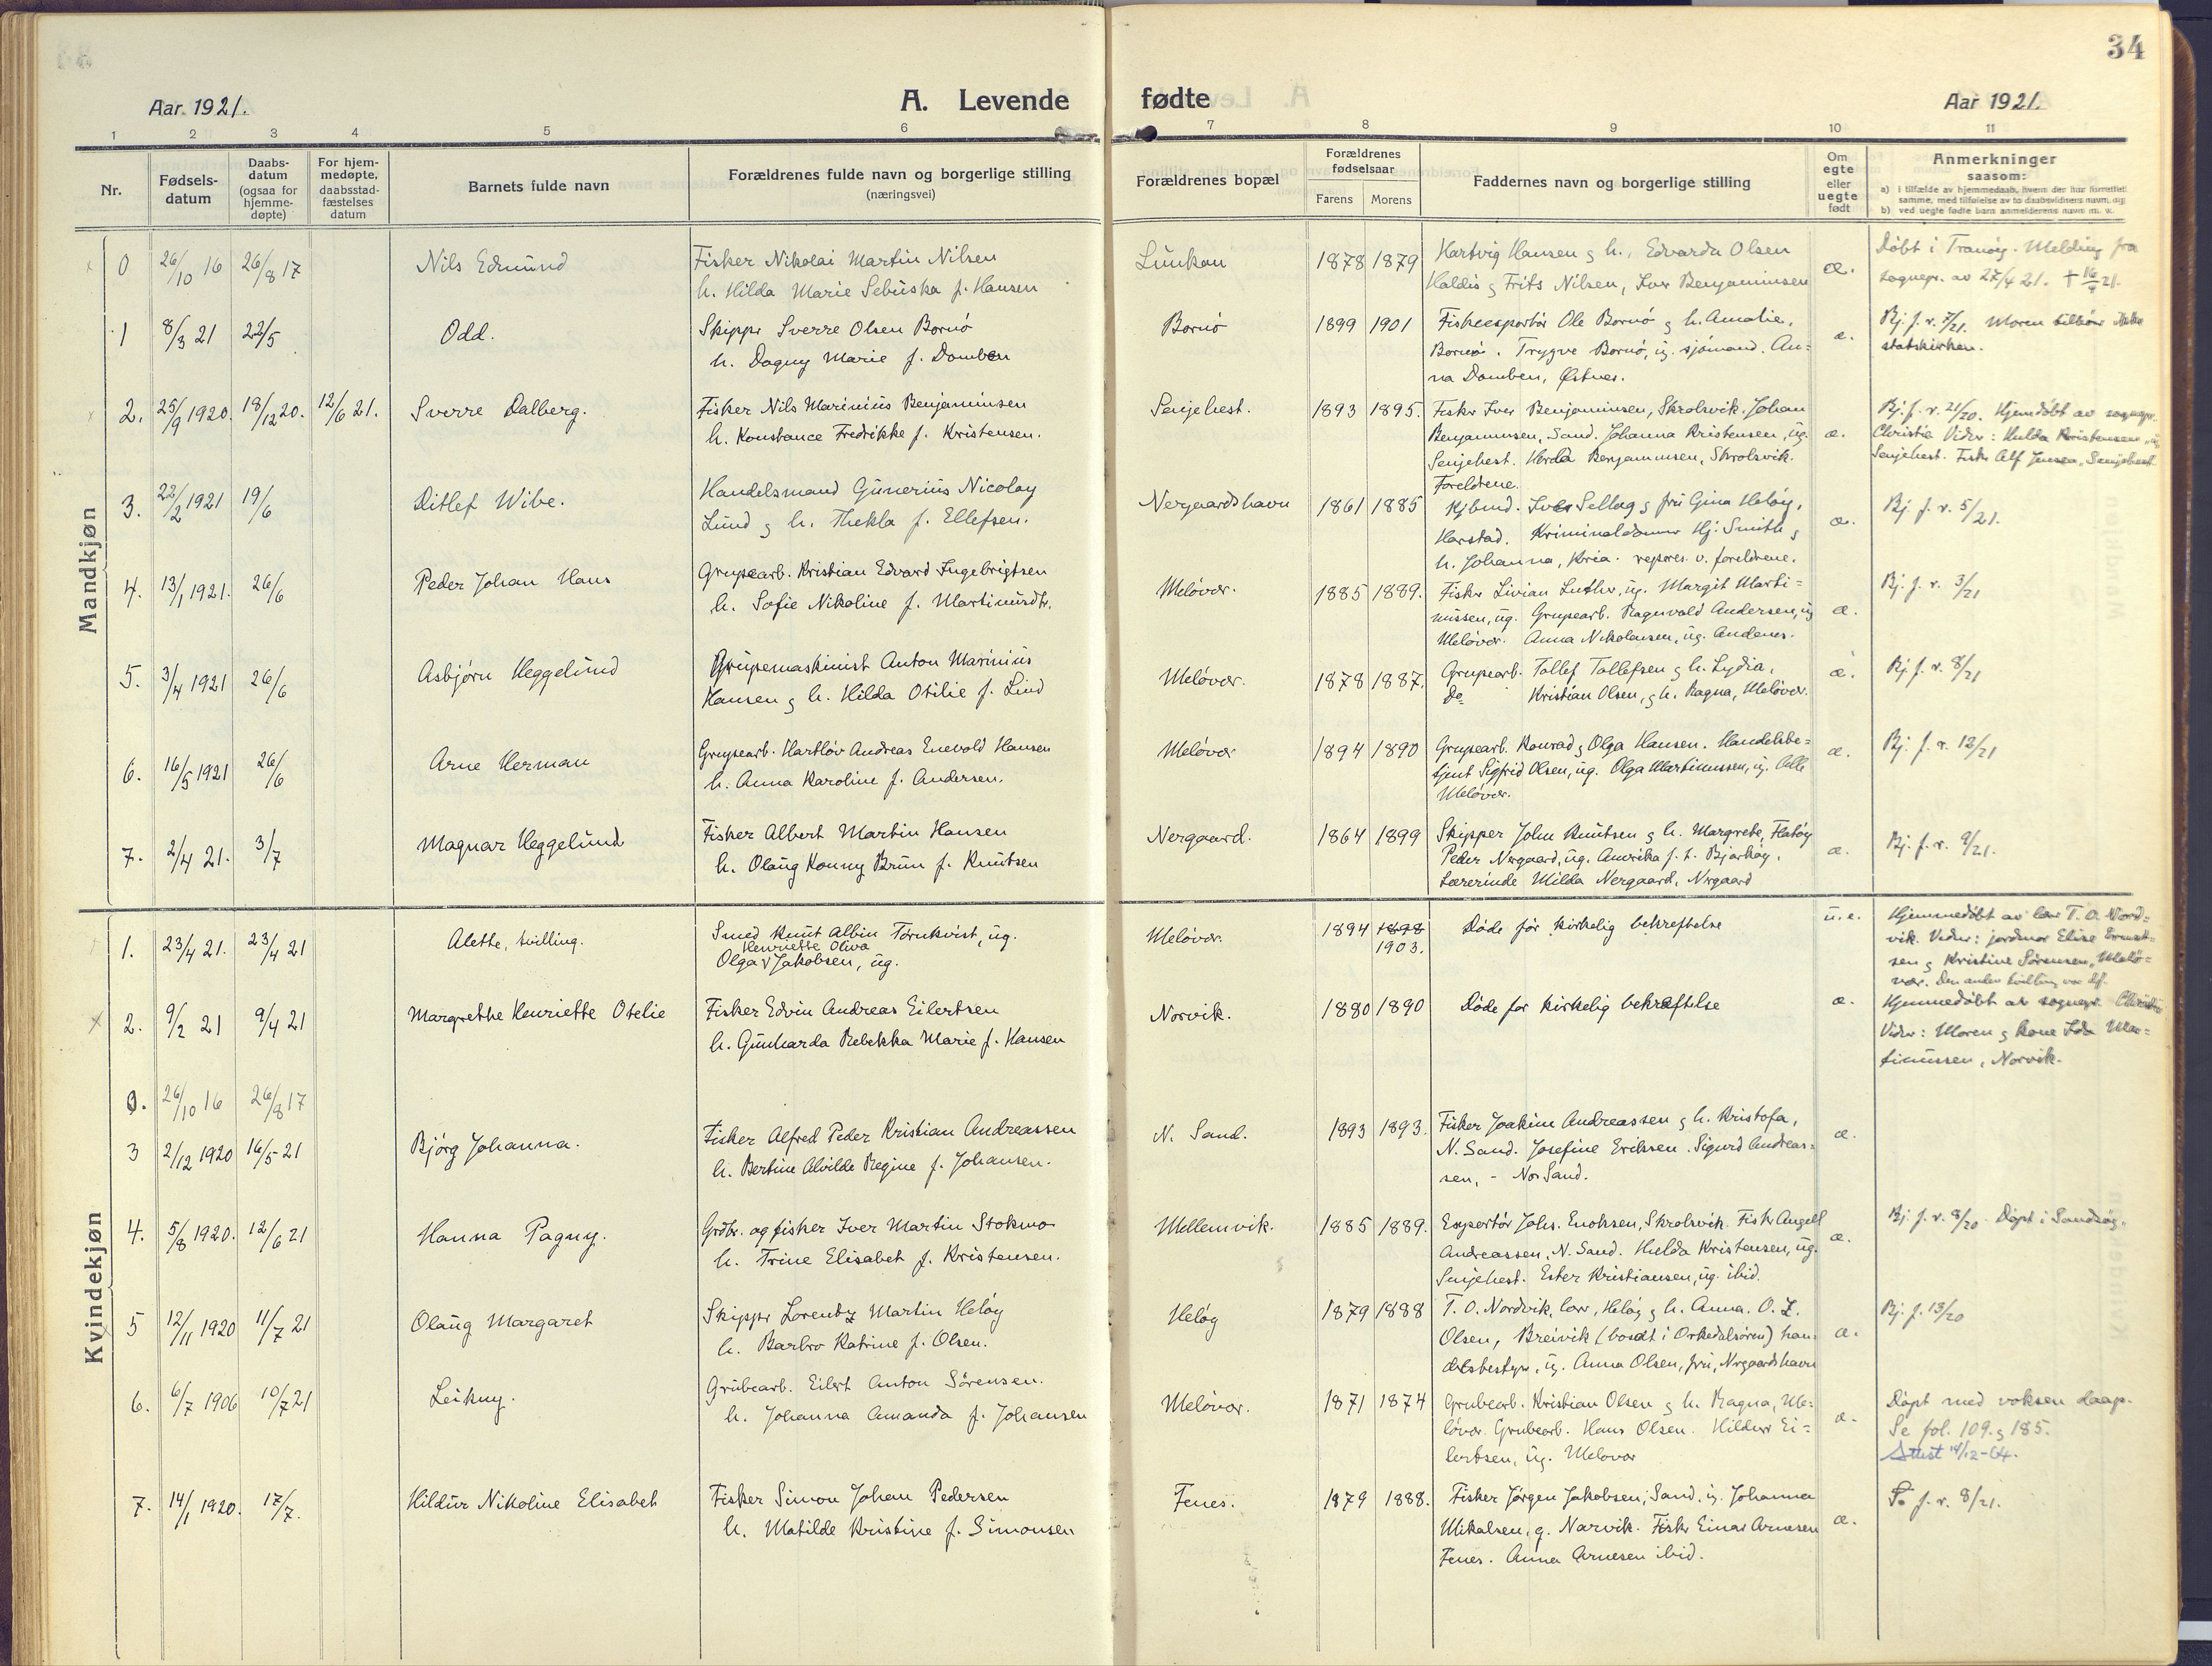 34
Aar 1921.
A. Levende fødte
Aar 1921.
1 2 3 4 5 6 7 8 9 10 11
Nr.
Fødsels-
datum
Daabs-
datum
(ogsaa for
hjemme-
døpte)
For hjem-
medøpte,
daabsstad-
fæstelses
datum
Barnets fulde navn
Forældrenes fulde navn og borgerlige stilling
(næringsvei)
Forældrenes bopæl
Forældrenes
fødselsaar
Farens Morens
Faddernes navn og borgerlige stilling
Om
egte
eller
uegte
født
Anmerkninger
saasom:
a) i tilfælde av hjemmedaab, hvem der har forrettet
samme, med tilføielse av to daabsvidners navn, og
b) ved uegte fødte barn anmelderens navn m. v.
Mandkjøn
0 26/10 16 26/8 17 Nils Edmund
Fisker Nikolai Martin Nilsen
h. Hilda Marie Sebuska f. Hansen
Lunkan 1878 1879
Hartvig Hansen g h., Edvarda Olsen
Haldis g Frits Nilsen, Iver Benjaminsen
æ.
Døbt i Tranøy. Melding fra
sognepr. av 27/4 21.
1 8/3 21 22/5 Odd.
Skippr Sverre Olsen Bornø
h. Dagny Marie f. Domben
Bornø 1899 1901
Fiskeexportør Ole Bornø g h. Amalie,
Bornø. Trygve Bornø, ug. sjømand. An=
na Domben, Østnes.
æ.
Bj. f. r. 7/21. Moren tilhør ikke
statskirken.
2. 25/9 1920. 18/12 20. 12/6 21. Sverre Dalberg.
Fisker Nils Marinius Benjaminsen
h. Konstance Fredrikke f. Kristensen.
Senjehest. 1893 1895.
Fiskr Iver Benjaminsen, Skrolsvik. Johan
Benjaminsen, Sand. Johanna Kristensen, ug.
Senjehest. Herda Benjaminsen, Skrolsvik.
Foreldrene.
æ.
Bj. f. r. 21/20. Hjemdøbt av sognepr.
Christie Vidr: Hulda Kristensen, ug.
Senjehest. Fiskr Alf Jensen, Senjehest.
3. 22/2 1921 19/6 Ditlef Wibe.
Handelsmand Gunerius Nicolay
Lund g h. Thekla f. Ellefsen.
Nergaardshavn 1861 1885
Kjbmd. Iver Sellæg g fru Gina Heløy,
Harstad. Kriminaldommer Hj. Smith g
h. Johanna, Kria. repres. v. foreldrene.
æ.
Bj. f. r. 5/21.
4. 13/1 1921. 26/6 Peder Johan Hans
Grupearb. Kristian Edvard Ingebrigtsen
h. Sofie Nikoline f. Martinusdtr.
Meløvær. 1885 1889.
Fiskr Livian Luthr, ug. Margit Marti=
nussen, ug. Grupearb. Ragnvald Andersen, ug
Meløvær. Anna Nikolaisen, ug. Andenes.
æ.
Bj. f. r. 3/21
5. 3/4 1921 26/6 Asbjørn Heggelund
Grupemaskinist Anton Marinius
Hansen g h. Hilda Otilie f. Lind
Meløvær. 1878 1887.
Grupearb. Tollef Tollefsen g h. Lydia,
Do Kristian Olsen, g h. Ragna, Meløvær.
æ.
Bj. f. r. 8/21
6. 16/5 1921 26/6 Arne Herman
Grupearb. Hartløv Andreas Enevold Hansen
h. Anna Karoline f. Andersen.
Meløvær 1894 1890
Grupearb. Konrad g Olga Hansen. Handelsbe=
tjent Sigfrid Olsen, ug. Olga Martinussen, ug. Alle
Meløvær.
æ.
Bj. f. r. 12/21
7. 2/4 21. 3/7 Magnar Heggelund
Fisker Albert Martin Hansen
h. Olaug Konny Brun f. Knutsen
Nergaard. 1864 1899
Skipper John Knutsen g h. Margrete, Flatøy
Peder Nergaard, ug. Amerika f. t. Bjarkøy.
Lærerinde Milda Nergaard, Nrgaard
æ.
Bj. f. r. 9/21.
Kvindekjøn
1. 23/4 21. 23/4 21 Alette, tvilling.
Smed Knut Albin Törnkvist, ug.
Henriette Oliva
Olga Jakobsen, ug.
Meløvær. 1894 1898 1903.
Døde før kirkelig bekreftelse
u.e.
Hjemmedøbt av lær T. O. Nord=
vik. Vidner: jordmor Elise Ernst=
sen g Kristine Sørensen, Melø=
vær. Den anden tvilling var df.
2. 9/2 21 9/4 21 Margrethe Henriette Otelie
Fisker Edvin Andreas Eilertsen
h. Gunharda Rebekka Marie f. Hansen
Norvik. 1880 1890
Døde før kirkelig bekræftelse
æ.
Hjemmedøbt av sognepr. Christie
Vidr: Moren g kone Ida Mar=
tinussen, Norvik.
0. 26/10 16 26/8 17
3 2/12 1920 16/5 21 Bjørg Johanna.
Fisker Alfred Peder Kristian Andreassen
h. Bertine Alvilde Regine f. Johansen.
N. Sand. 1893 1893.
Fisker Joakim Andreassen g h. Kristofa,
N. Sand. Josefine Eriksen. Sigurd Andreas=
sen, - Nor Sand.
æ.
4. 5/8 1920. 12/6 21 Hanna Pagny.
Grdbr. og fisker Iver Martin Stokmo
h. Trine Elisabet f. Kristensen.
Mellemvik. 1885 1889.
Exportør Johs. Enoksen, Skrolsvik. Fiskr Angell
Andreassen, N. Sand. Hulda Kristensen, ug.
Senjehest. Ester Kristiansen, ug. ibid.
æ.
Bj. f. r. 8/20. Døpt i Sandsøy.
5 12/11 1920 11/7 21 Olaug Margaret
Skippr Lorentz Martin Heløy
h. Barbro Katrine f. Olsen.
Heløy 1879 1888
T. O. Nordvik, lær, Heløy g h. Anna. O. Z.
Olsen, Breivik (bosat i Orkedalsøren) han=
delsbestyr, ug. Anna Olsen, fru, Nrgaardshavn
æ.
Bj. f. 13/20
6. 6/7 1906 10/7 21 Leikny.
Grubearb. Eilert Anton Sörensen.
h. Johanna Amanda f. Johansen
Meløvær. 1871 1874
Grubearb. Kristian Olsen g h. Ragna, Me=
løvær. Grubearb. Hans Olsen. Hildur Ei=
lertsen, ug. Meløvær
æ.
Døpt med voksen daap.
Se fol. 109. g 185.
Attest 14/12-64.
7. 14/1 1920. 17/7. Hildur Nikoline Elisabeth
Fisker Simon Johan Pedersen
h. Matilde Kristine f. Simonsen
Fenes. 1879 1888.
Fisker Jørgen Jakobsen, Sand. ug. Johanna
Mikalsen, g. Narvik. Fiskr Einar Arnesen
Fenes. Anna Arnesen ibid.
æ.
f. r. 8/21.